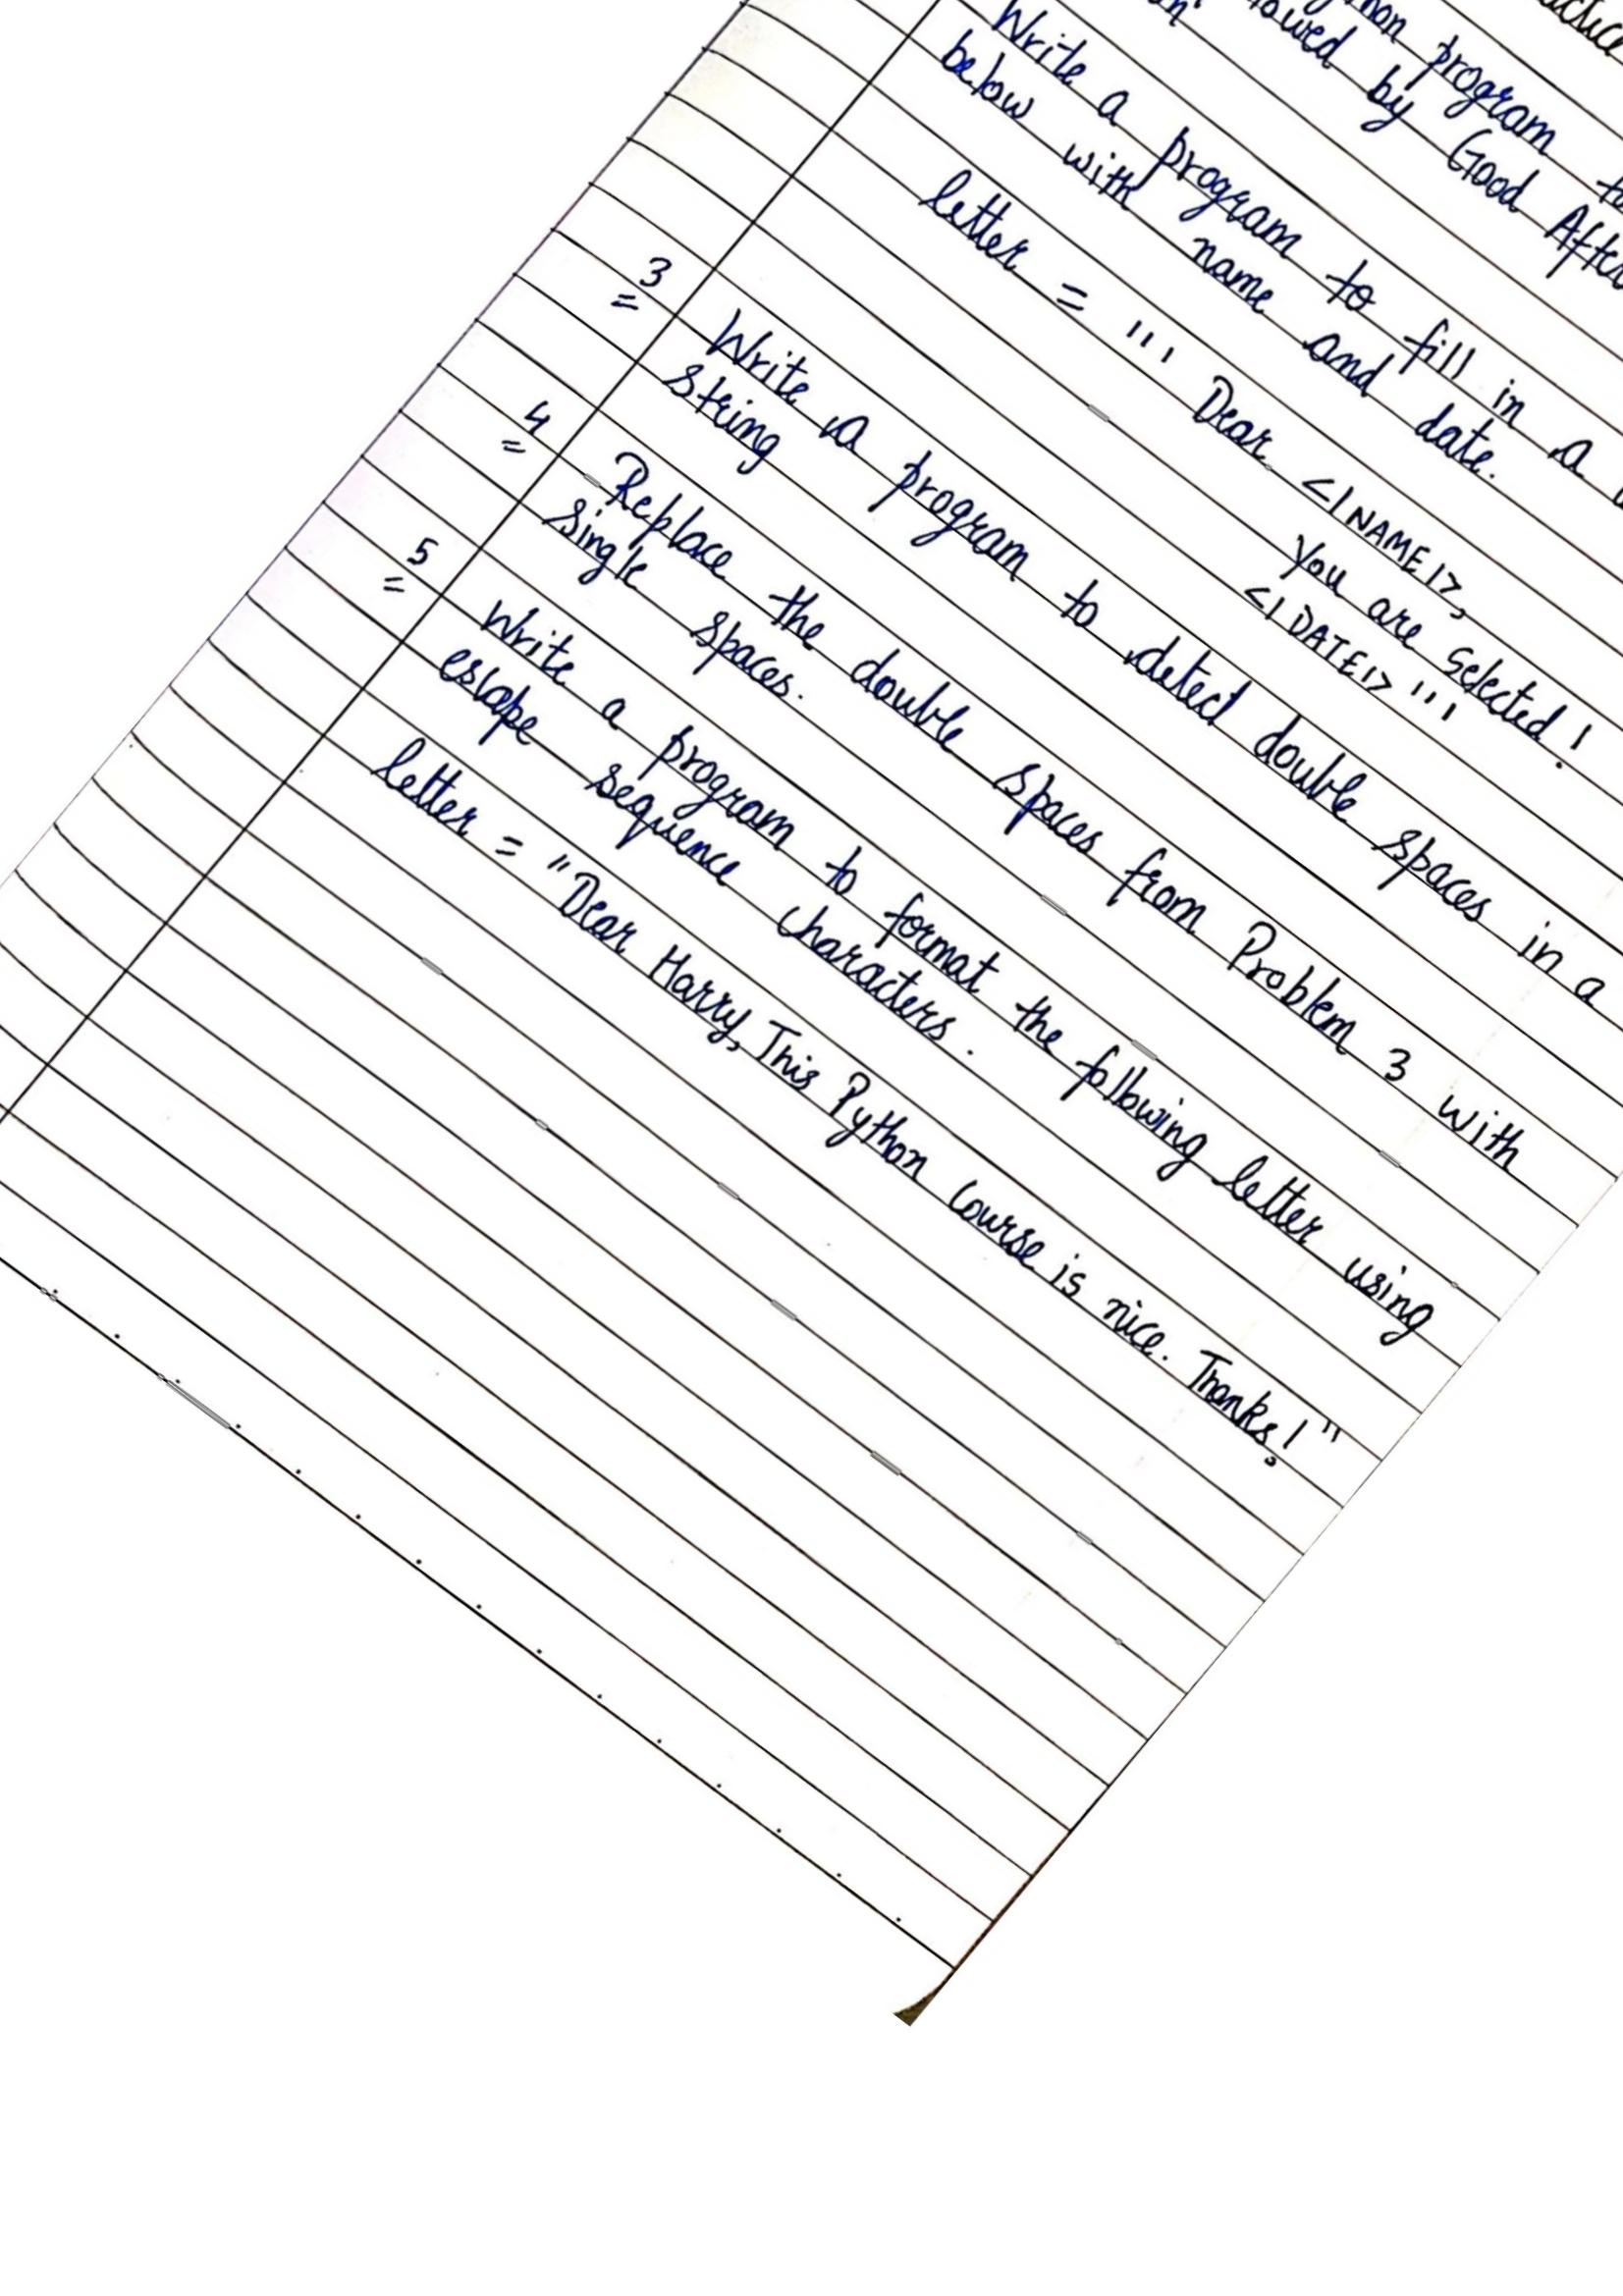 program
by Good
Write a program to fill in a
below with name and date.
letter = ''' Dear <|NAME|>,
You are selected!
<|DATE|> '''
3 Write a program to detect double spaces in a
string
4 Replace the double spaces from Problem 3 with
single spaces.
5 Write a program to format the following letter using
escape sequence characters.
letter = "Dear Harry, This Python course is nice. Thanks!"